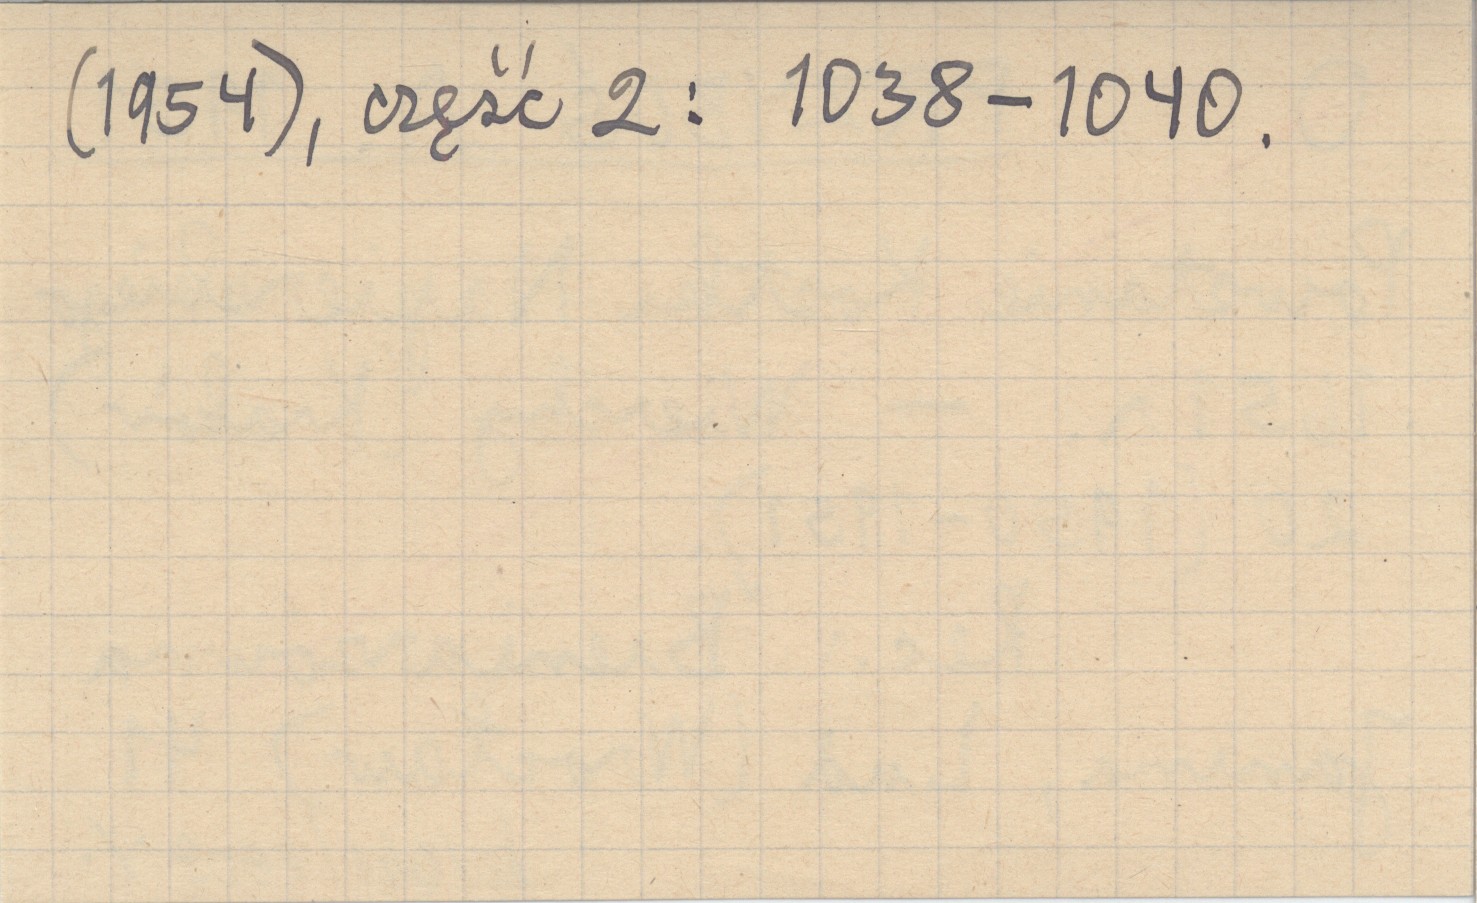 (1954), część 2: 1038-1040.